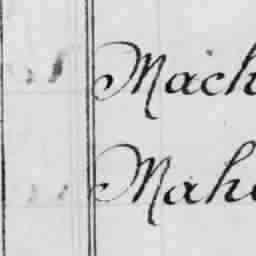 Mach
Mahe